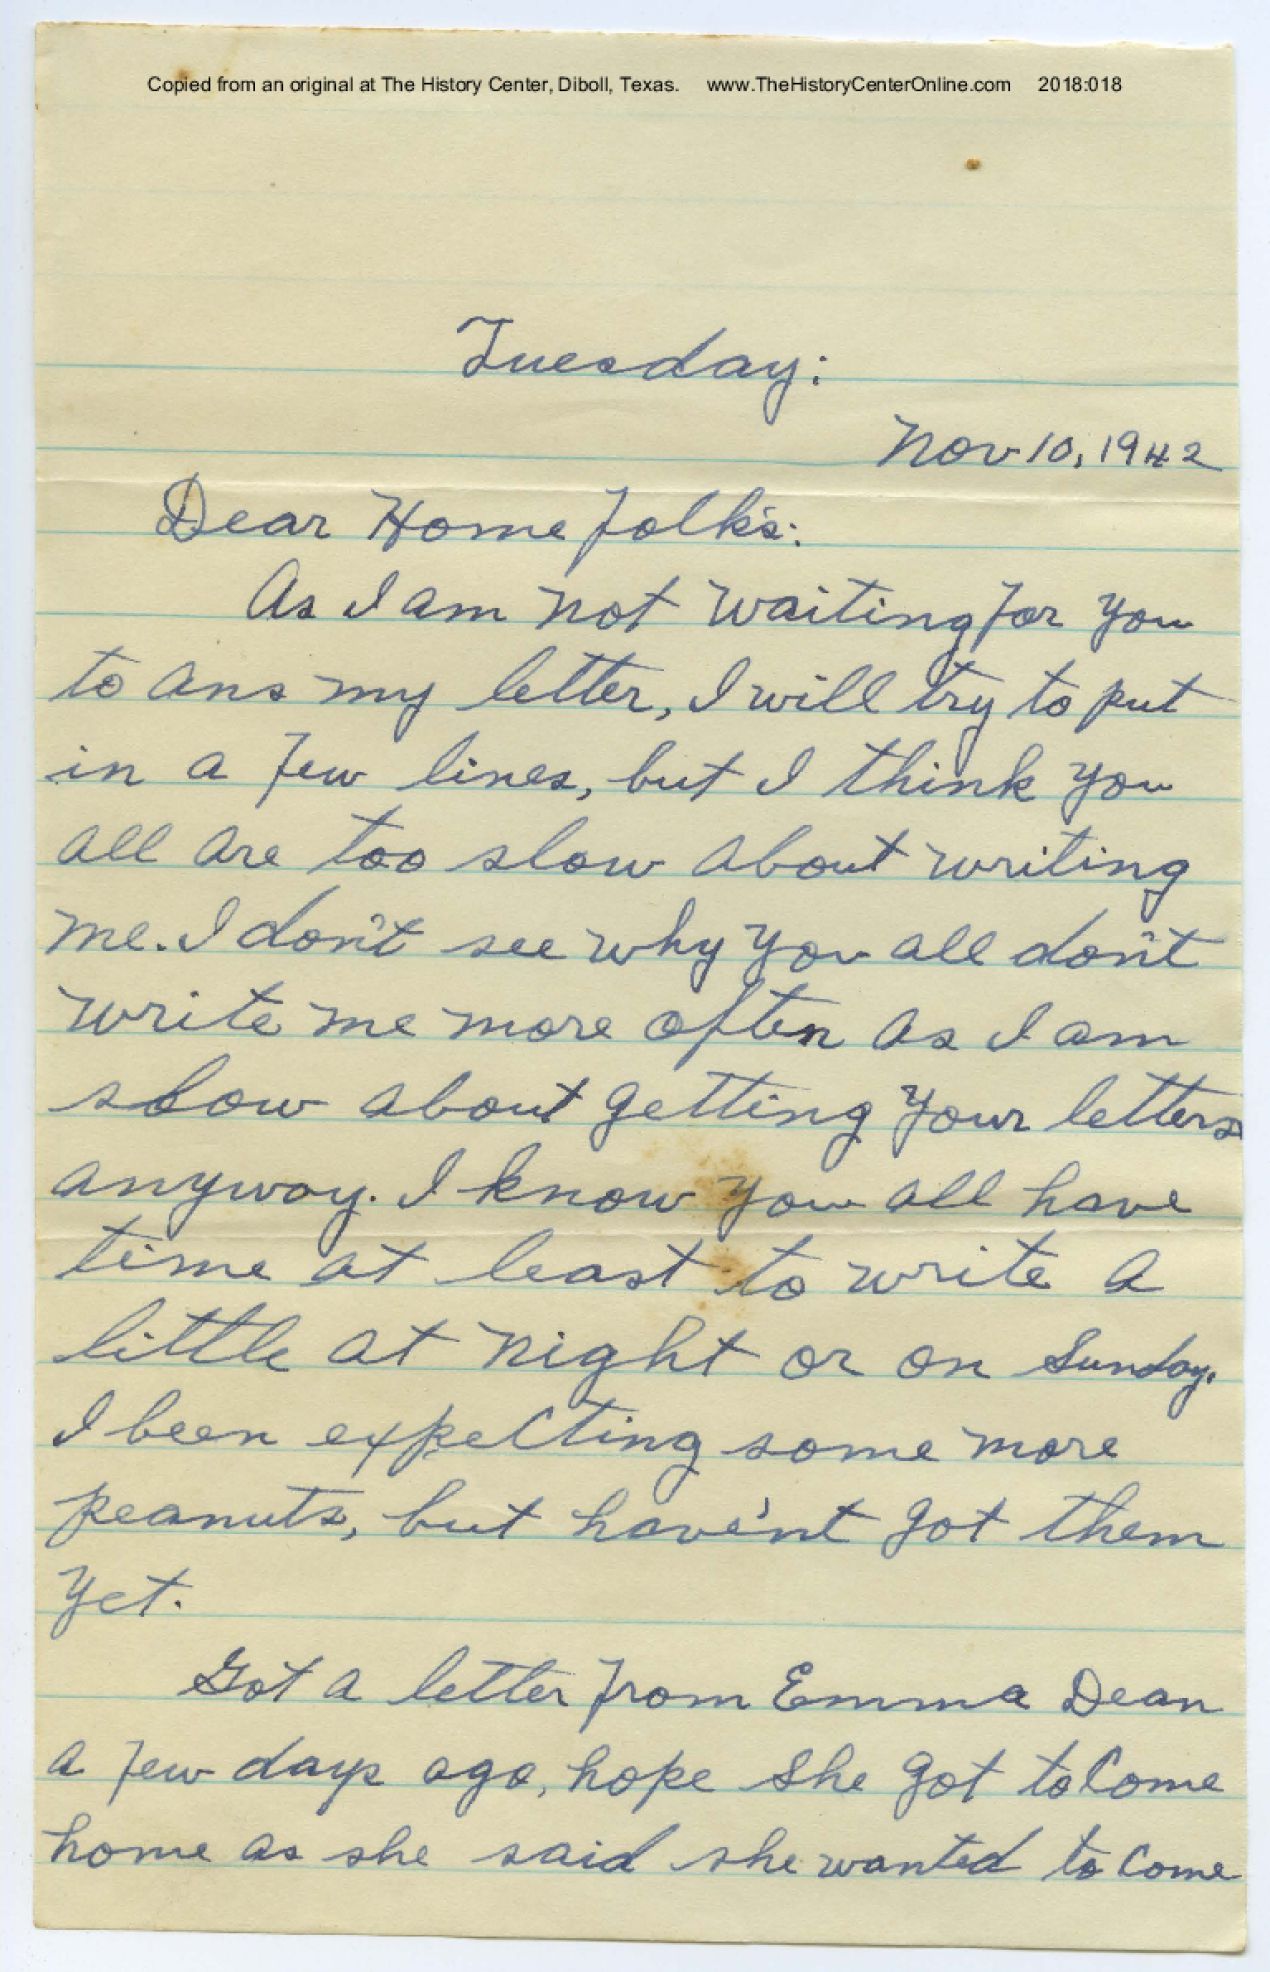 Copied from an original at The History Center, Diboll, Texas. www.TheHistoryCenterOnline.com 2018:018
Tuesday:
Nov 10, 1942
Dear Home folk's:
As I am not waiting for you
to ans my letter, I will try to put
in a few lines, but I think you
all are too slow about writing
me. I don't see why you all don't
write me more often as I am
slow about getting your letters
anyway. I know you all have
time at least to write a
little at night or on Sunday.
I been expecting some more
peanuts, but have'nt got them
yet.
Got a letter from Emma Dean
a few days ago, hope she got to come
home as she said she wanted to come